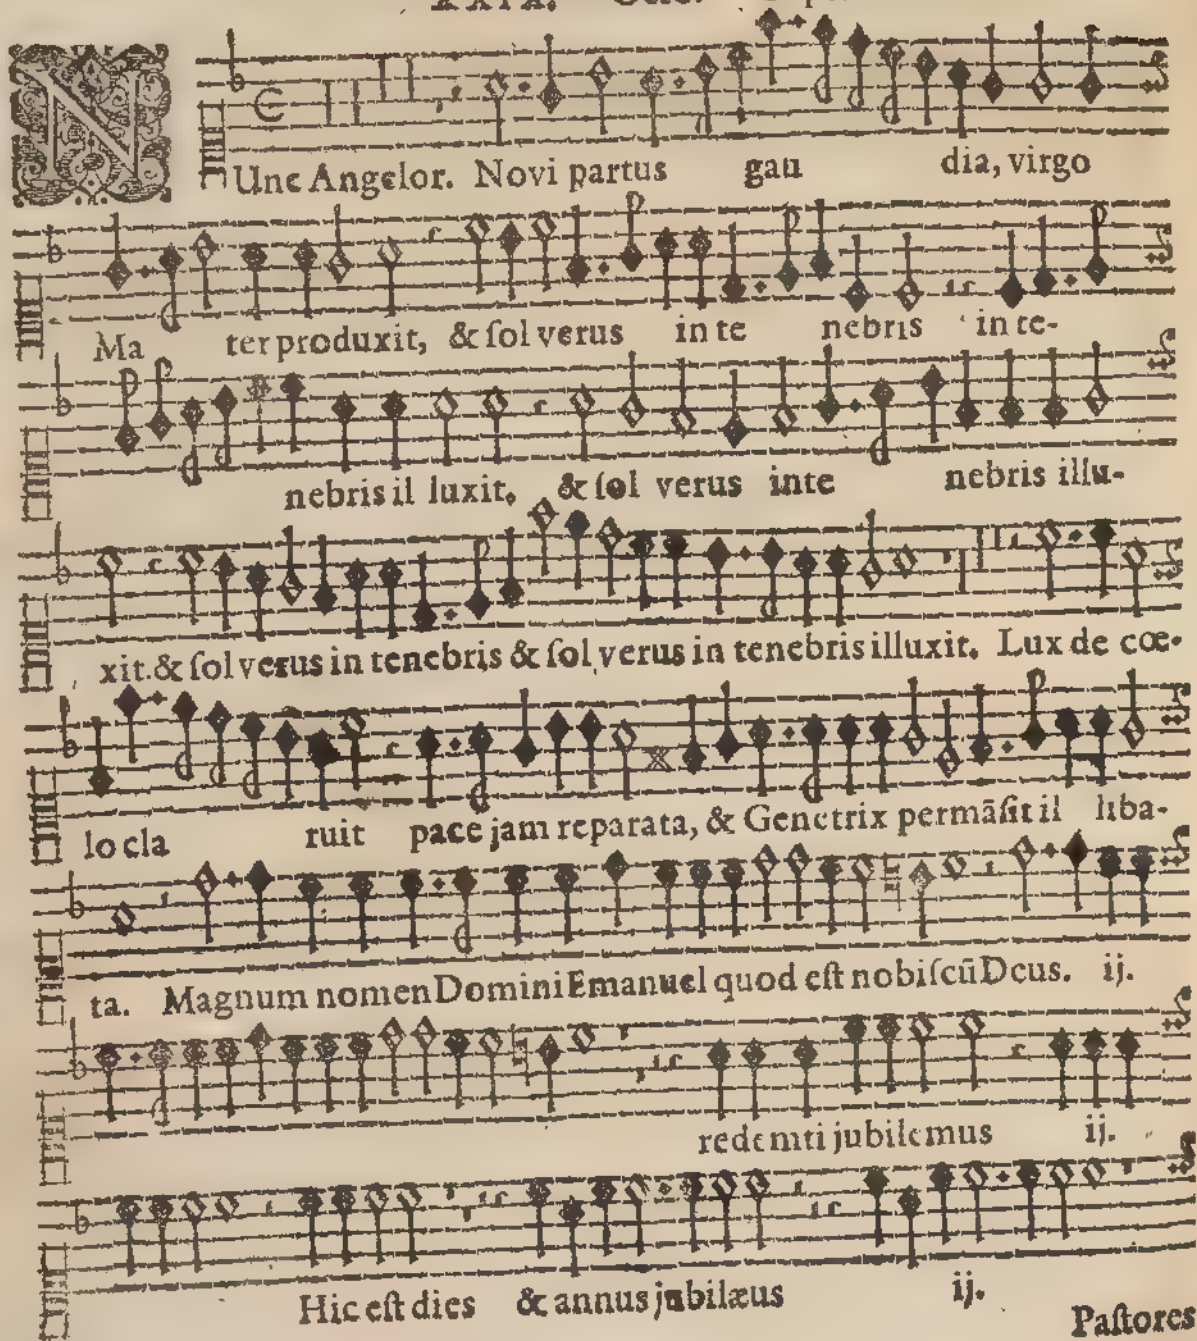 XXIX.
NUnc Angelor. Novi partus gau dia, virgo
Ma ter produxit, & ſol verus in te nebris in te-
nebris il luxit. & ſol verus inte nebris illu-
xit. & ſol verus in tenebris & ſol verus in tenebris illuxit. Lux de cœ-
lo cla ruit pace jam reparata, & Genetrix permãſit il liba-
ta. Magnum nomen Domini Emanuel quod eſt nobiſcũ Deus. ij.
redemti jubilemus ij.
Hic eſt dies & annus jubilæus ij.
Paſtores